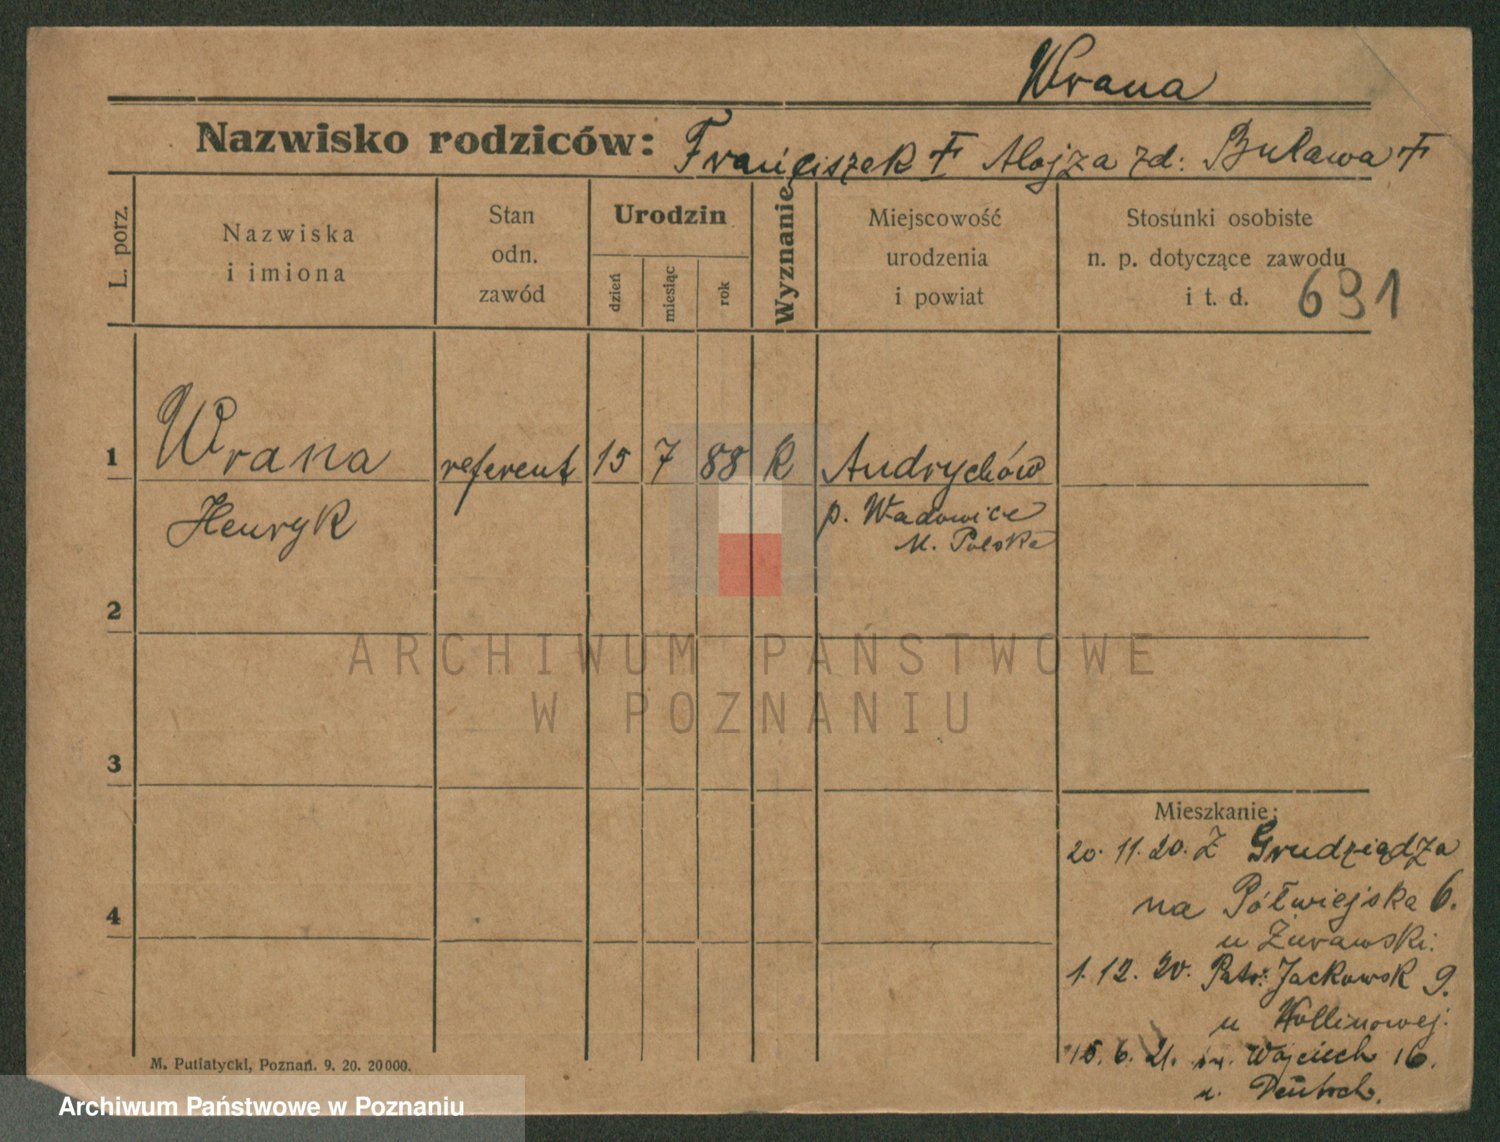 Wrana
Nazwisko rodziców: Franciszek † Alojza zd: Buława †
L. porz.
Nazwiska
i imiona
Stan
odn.
zawód
Urodzin
dzień
miesiąc
rok
Wyznanie
Miejscowość
urodzenia
i powiat
Stosunki osobiste
n. p. dotyczące zawodu
i t. d.
691
1 Wrana referent 15 7 88 K Andrychów
Henryk p. Wadowice
M. Polska
2
ARCHIWUM PAŃSTWOWE
W POZNANIU
3
Mieszkanie:
20. 11. 20. Z Grudziądza
4
na Półwiejska 6.
u Żurawski.
1. 12. 20. Patr. Jackowsk 9.
u Wollinowej.
15. 6. 21. św. Wojciech 16.
u. Deutsch.
M. Putiatycki, Poznań. 9. 20. 20000.
Archiwum Państwowe w Poznaniu